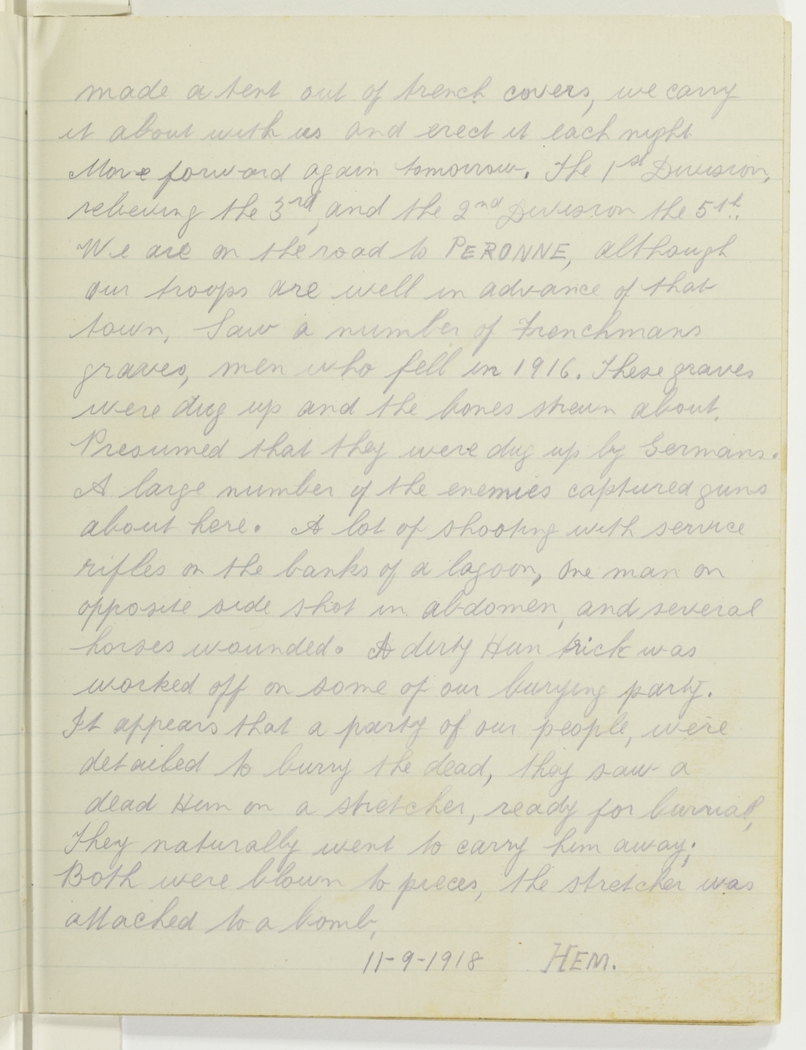 made a tent out of trench covers, we carry
it about with us and erect it each night
Move forward again tomorrow. The 1st Division,
relieving the 3rd, and the 2nd Division the 5th.
We are on the road to PERONNE, although
our troops are well in advance of that
town, Saw a number of Frenchmans
graves, men who fell in 1916. These graves
were dug up and the bones strewn about.
Presumed that they were dug up by Germans.
A large number of the enemies captured guns
about here. A lot of shooting with service
rifles on the banks of a lagoon, one man on
opposite side shot in abdomen, and several
horses wounded. A dirty Hun trick was
worked off on some of our burying party.
It appears that a party of our people, were
detailed to burry the dead, they saw a
dead Hun on a stretcher, ready for burrial,
They naturally went to carry him away;
Both were blown to pieces, the stretcher was
attached to a bomb,
11-9-1918 HEM.